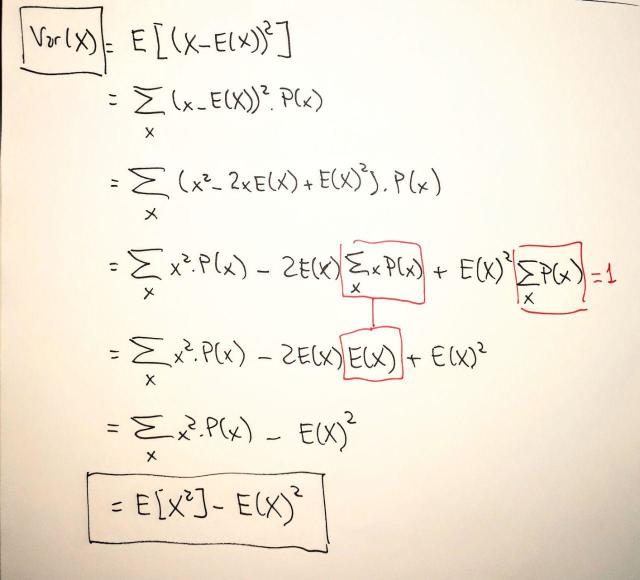 Var(X) = E[(X-E(X))²]
= ∑ₓ (x-E(X))². P(x)
= ∑ₓ (x² - 2xE(X) + E(X)²). P(x)
= ∑ₓ x². P(x) - 2E(X) ∑ₓ x P(x) + E(X)² ∑ₓ P(x) = 1
= ∑ₓ x². P(x) - 2E(X) E(X) + E(X)²
= ∑ₓ x². P(x) - E(X)²
= E[X²] - E(X)²